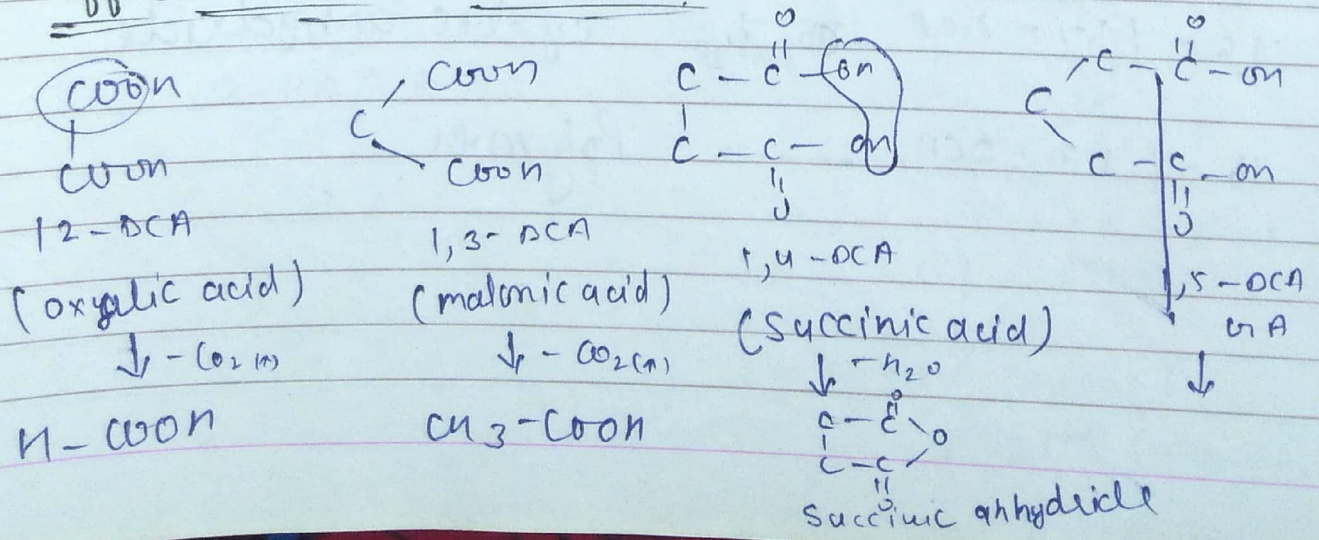 COOH
COOH
12-DCA
(oxyalic acid)
↓ -CO2(↑)
H-COOH
C
COOH
COOH
1,3-DCA
(malonic acid)
↓ -CO2(↑)
CH3-COOH
O
C - C - OH
C - C - OH
O
1,4-DCA
(Succinic acid)
↓ -H2O
O
C - C
O
C - C
O
Succinic anhydride
O
C - C - OH
C
C - C - OH
O
1,5-DCA
↓